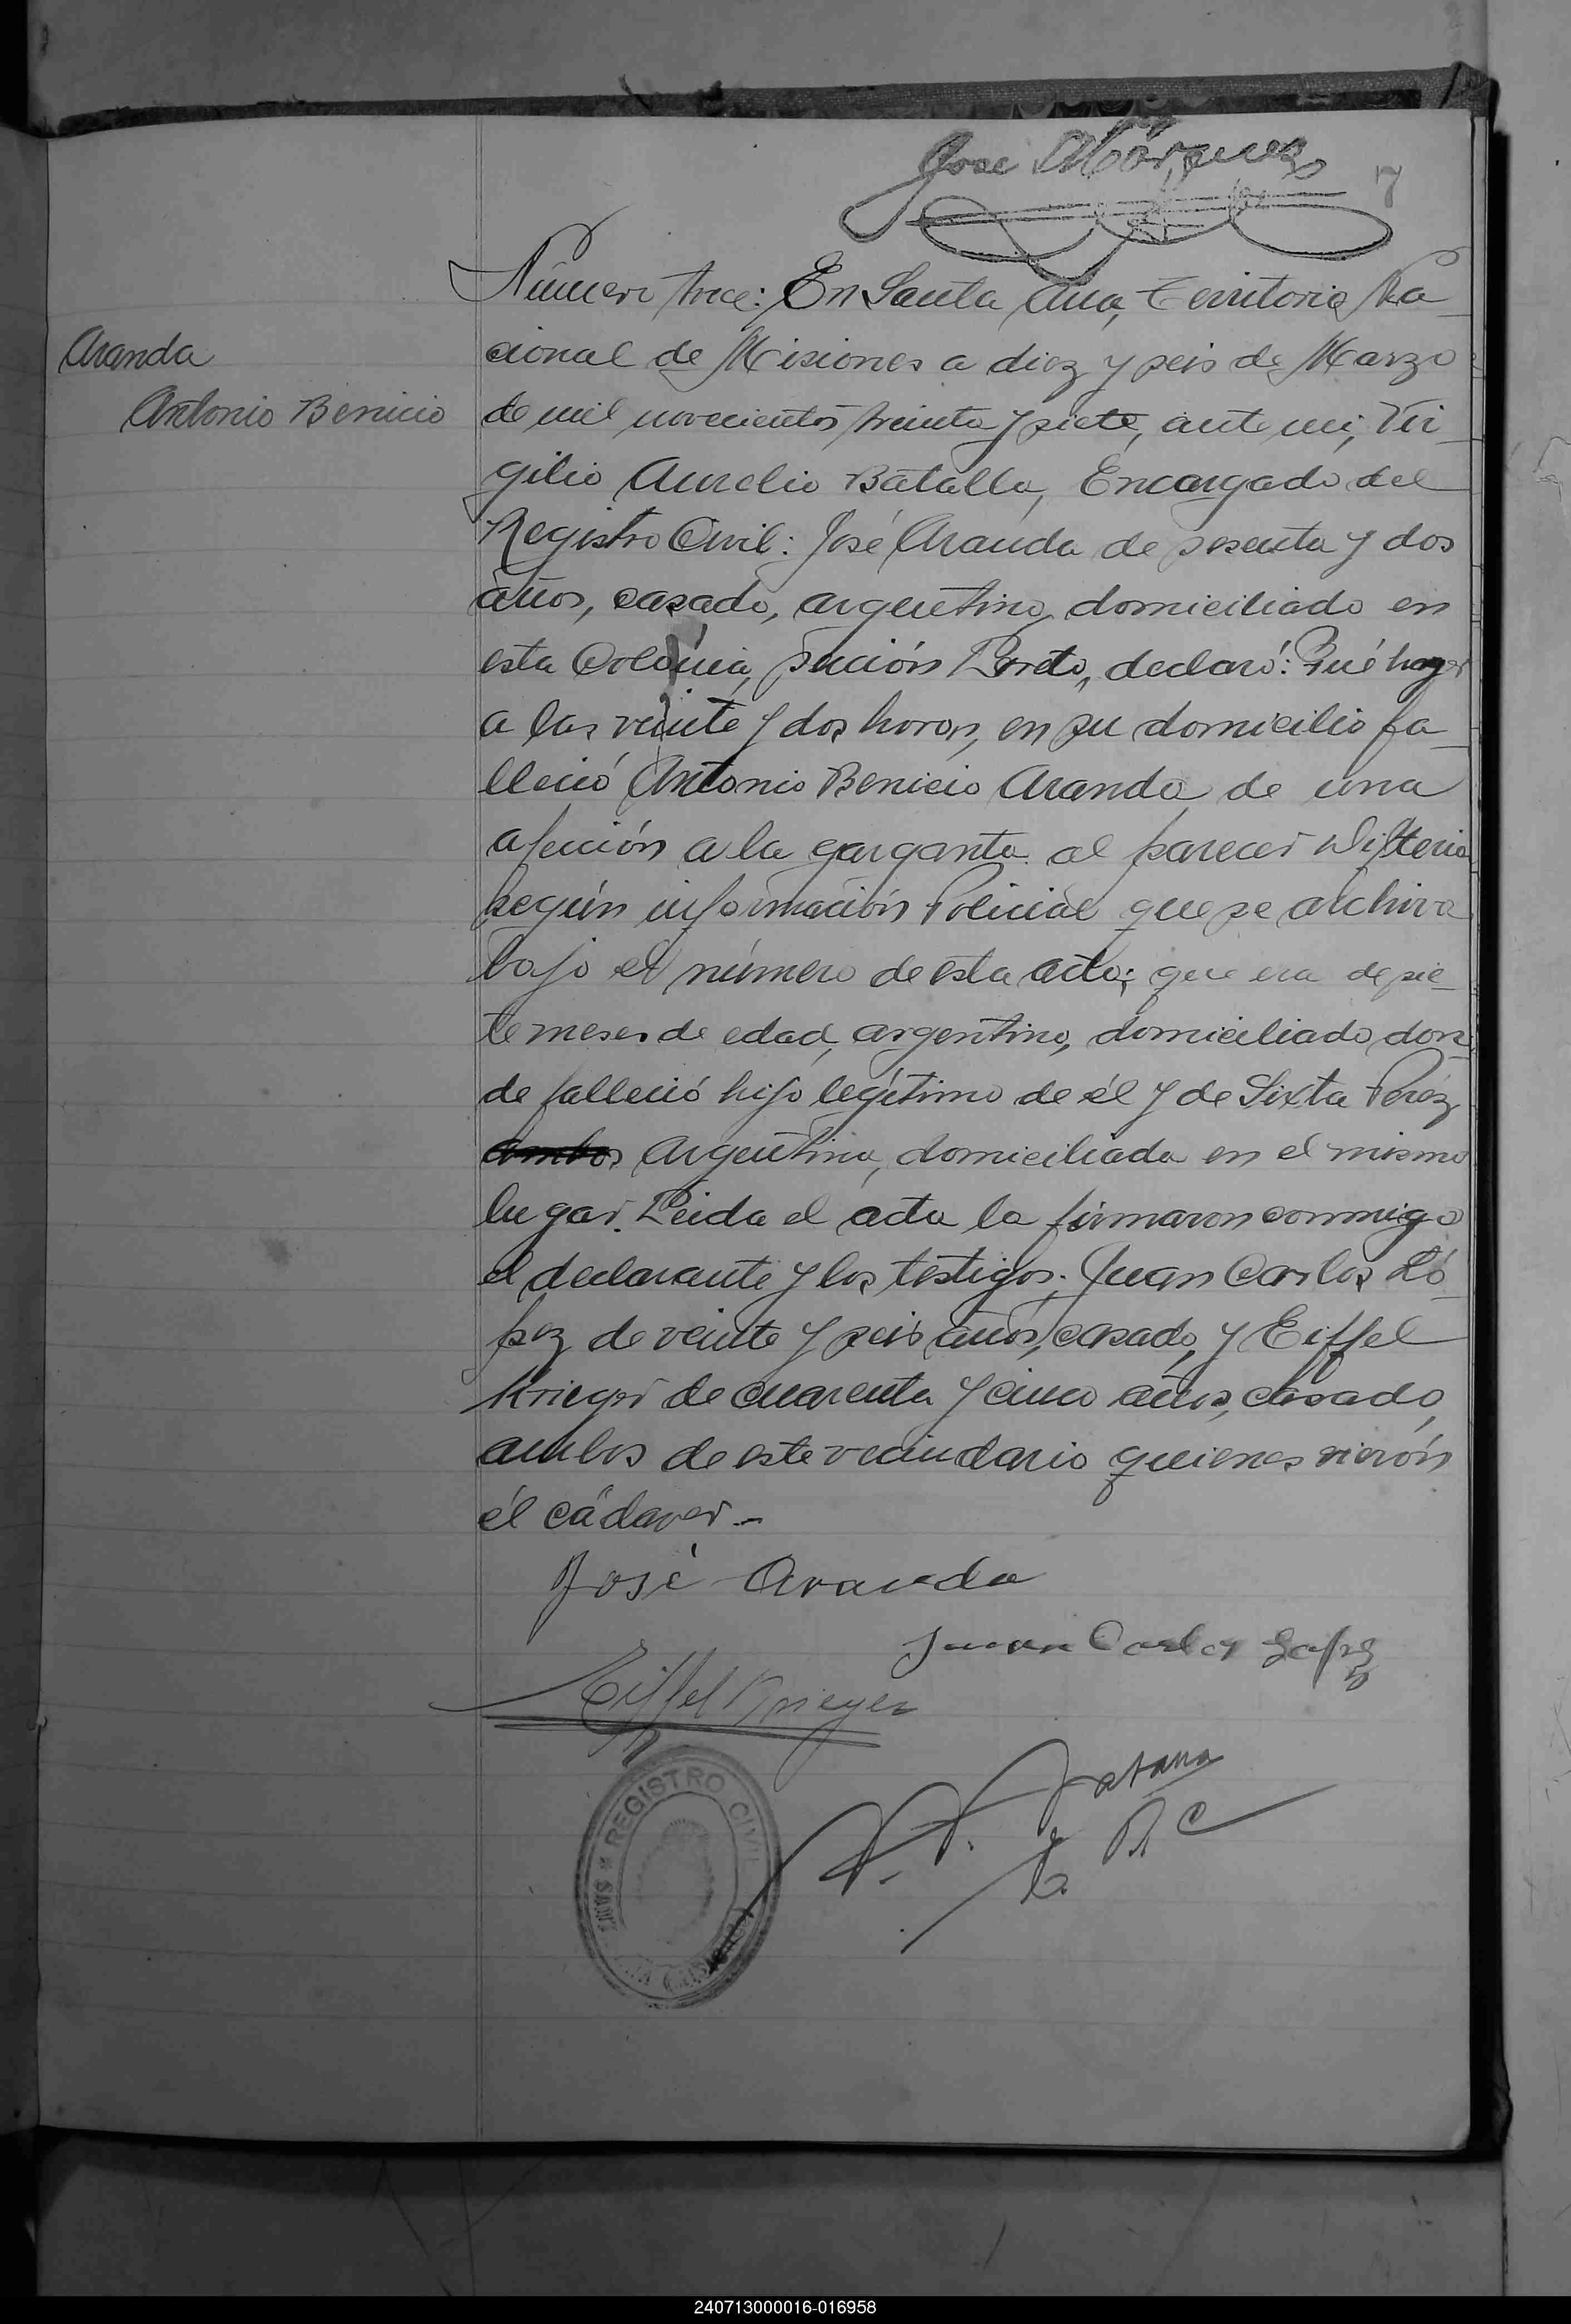 José Márquez
7
Número trece: En Santa Ana, Territorio Na-
Aranda
cional de Misiones a diez y seis de Marzo
Antonio Benicio
de mil novecientos treinta y siete, ante mi, Vir-
gilio Aurelio Batalla, Encargado del
Registro Civil: José Aranda de sesenta y dos
años, casado, argentino, domiciliado en
esta Colonia, sección Loreto, declaró: Qué hoy
a las veinte y dos horas, en su domicilio fa-
lleció Antonio Benicio Aranda de una
afección a la garganta al parecer Difteria
según información Policial que se archiva
bajo el número de esta acta; que era de sie-
te meses de edad, argentino, domiciliado don-
de falleció hijo legítimo de él y de Sixta Peréz
ambos Argentina, domiciliada en el mismo
lugar. Leida el acta la firmaron conmigo
el declarante y los testigos: Juan Carlos Ló-
pez de veinte y seis años, casado, y Eiffel
Krieger de cuarenta y cinco años, casado,
ambos de este vecindario quienes vierón
él cádaver.-
José Aranda
Juan Carlos Lopez
Eiffel Krieger
E. R C
REGISTRO CIVIL
240713000016-016958